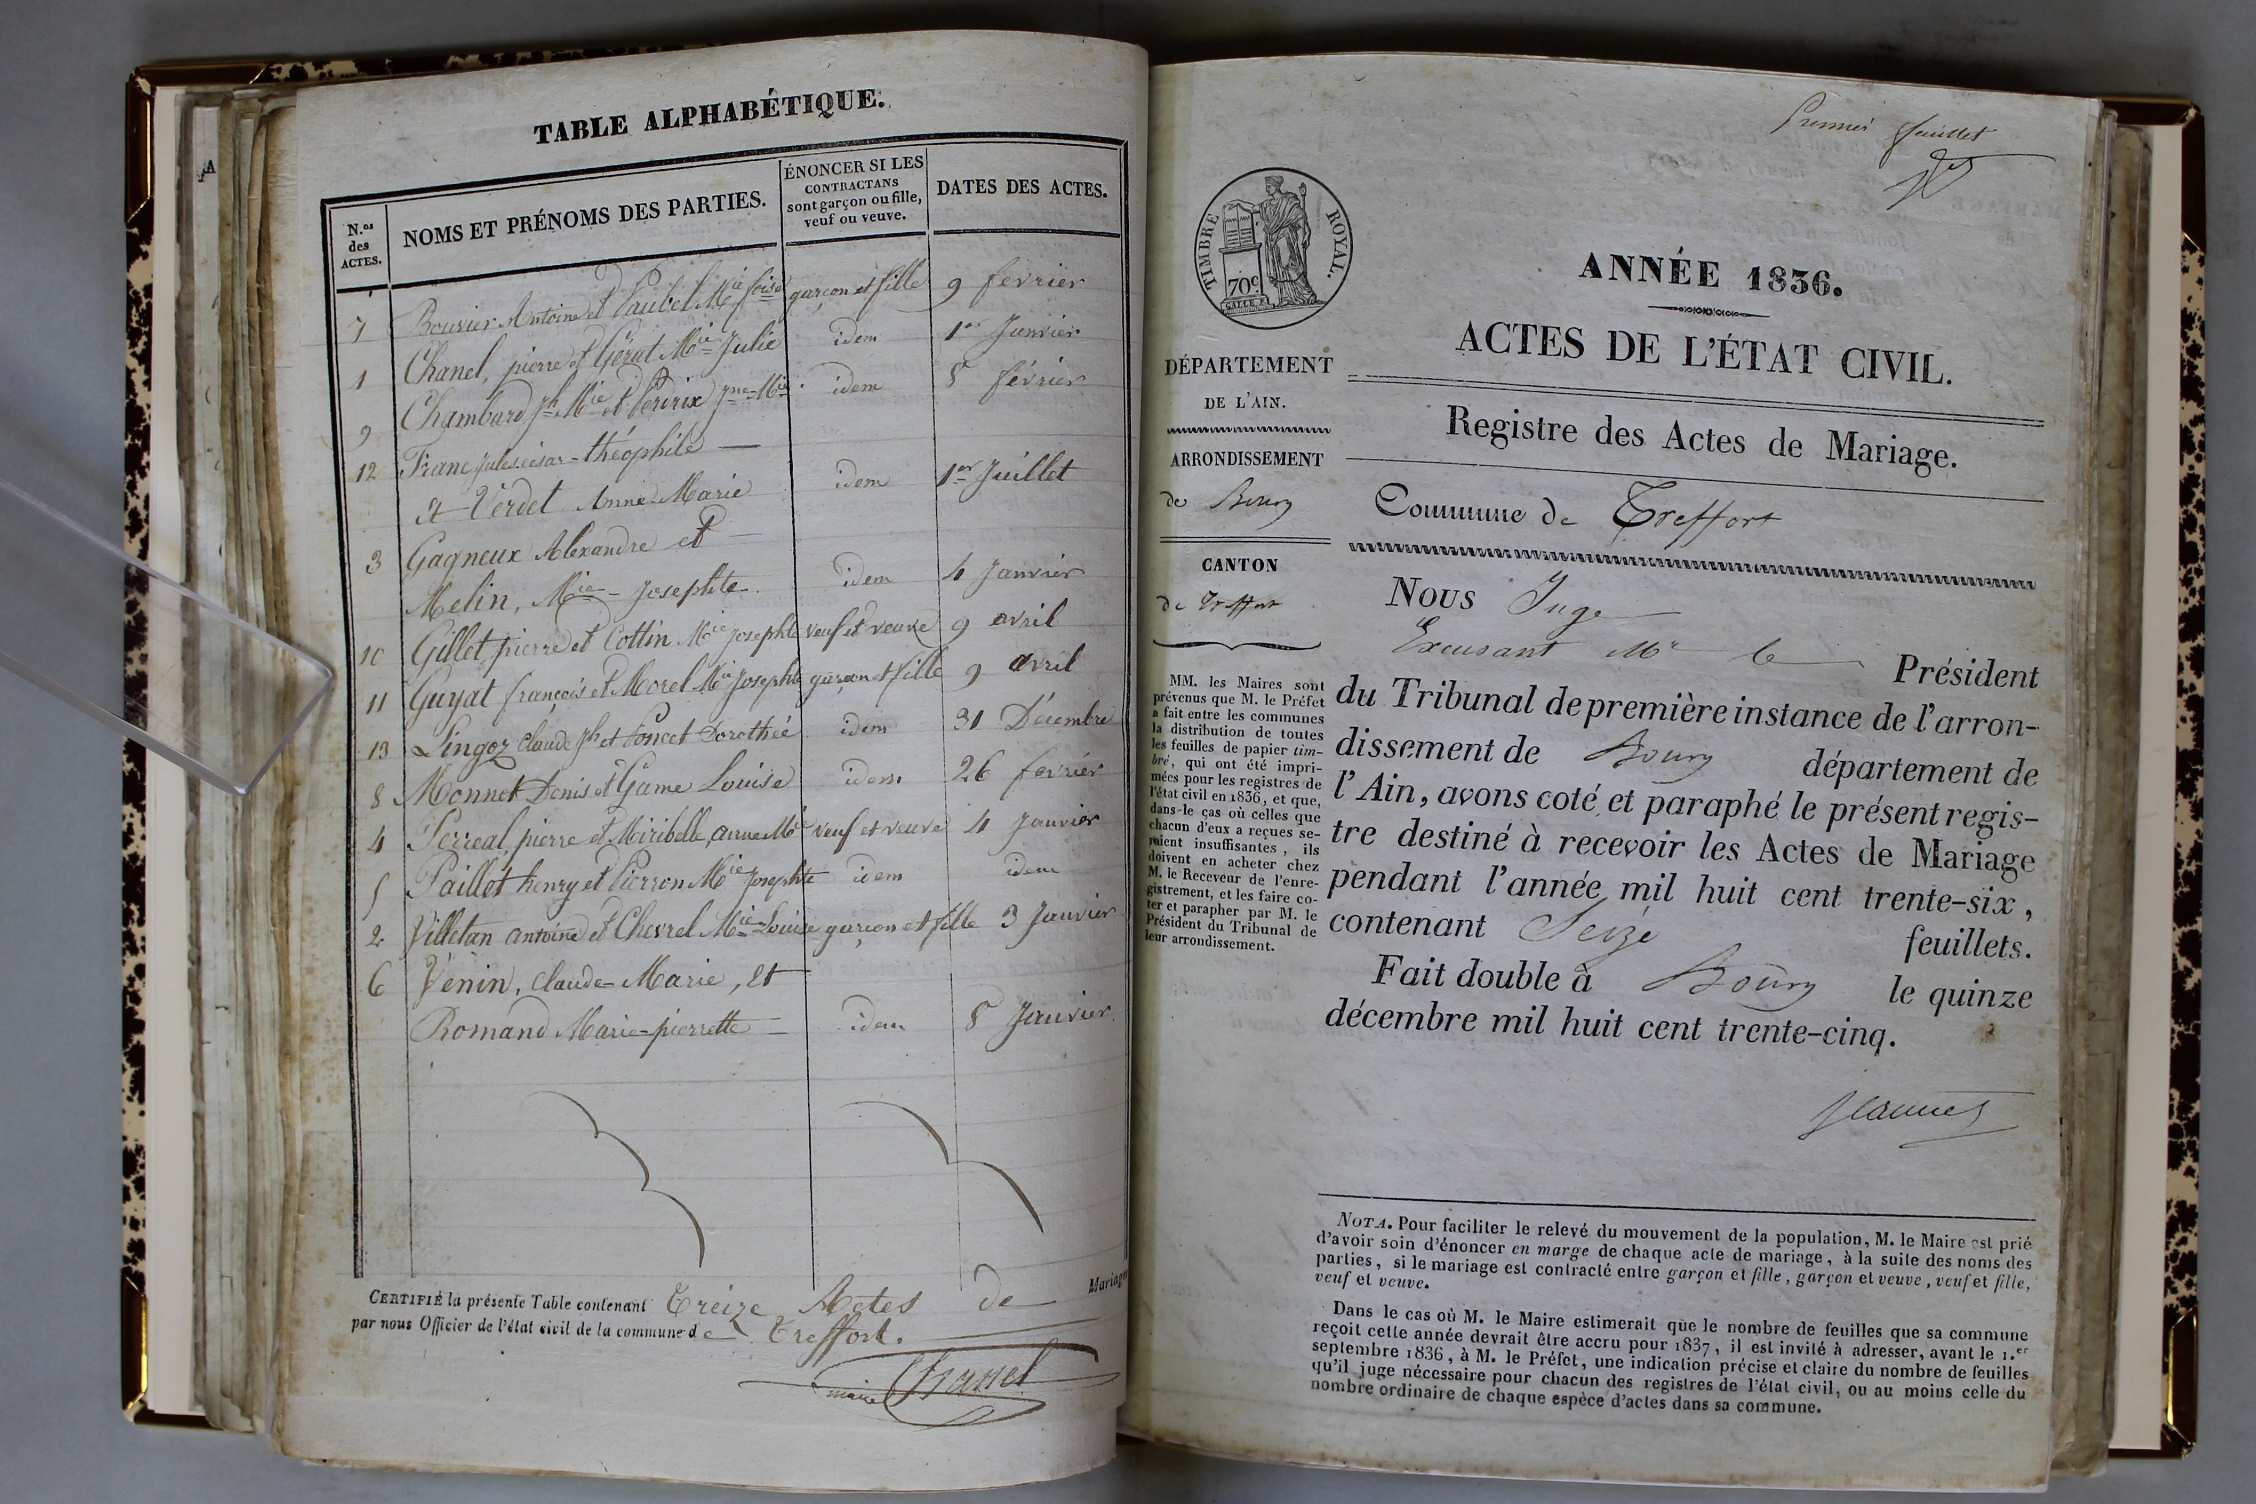 TABLE ALPHABÉTIQUE.
N.os des ACTES.
NOMS ET PRÉNOMS DES PARTIES.
ÉNONCER SI LES
CONTRACTANS
sont garçon ou fille,
veuf ou veuve.
DATES DES ACTES.
7 Bouvier Antoine et Paubel Mie foise garçon et fille 9 février
1 Chanel, pierre et Gérat Mie Julie idem 1er Janvier
9 Chambard Jh Mie et Peririx Jne-Mie idem 8 février
12 Franc Jules césar-théophile —
et Verdet Anne Marie idem 1er Juillet
3 Gagneux Alexandre et —
Melin, Mie-Josephte idem 4 Janvier
10 Gillet pierre et Cottin Mie Josephte veuf et veuve 9 avril
11 Guyat françois et Morel Mie Josephte garçon et fille 9 avril
13 Lingoz Claude Jh et Poncet Dorothée idem 31 Décembre
8 Monnet Denis et Game Louise idem 26 fevrier
4 Perreal, pierre et Miribelle, anne Mie veuf et veuve 4 Janvier
5 Paillot henry et Pierron Mie Josephte idem idem
2 Villetan antoine et Chevrel Mie-Louise garçon et fille 3 Janvier
6 Vénin, Claude-Marie, et
Romand Marie-pierrette — idem 8 Janvier
CERTIFIÉ la présente Table contenant Treize Actes de Mariage
par nous Officier de l'état civil de la commune de Treffort.
maire Chanel
Premier feuillet
TIMBRE ROYAL.
70c.
ANNÉE 1836.
ACTES DE L'ÉTAT CIVIL.
Registre des Actes de Mariage.
Commune de Treffort
DÉPARTEMENT
DE L'AIN.
ARRONDISSEMENT
de Bourg
CANTON
de Treffort
MM. les Maires sont
prévenus que M. le Préfet
a fait entre les communes
la distribution de toutes
les feuilles de papier tim-
bré, qui ont été impri-
mées pour les registres de
l'état civil en 1836, et que,
dans le cas où celles que
chacun d'eux a reçues se-
raient insuffisantes, ils
doivent en acheter chez
M. le Receveur de l'enre-
gistrement, et les faire co-
ter et parapher par M. le
Président du Tribunal de
leur arrondissement.
Nous Juge
Excusant Mr le Président
du Tribunal de première instance de l'arron-
dissement de Bourg département de
l'Ain, avons coté et paraphé le présent regis-
tre destiné à recevoir les Actes de Mariage
pendant l'année mil huit cent trente-six,
contenant Seize feuillets.
Fait double à Bourg le quinze
décembre mil huit cent trente-cinq.
NOTA. Pour faciliter le relevé du mouvement de la population, M. le Maire est prié
d'avoir soin d'énoncer en marge de chaque acte de mariage, à la suite des noms des
parties, si le mariage est contracté entre garçon et fille, garçon et veuve, veuf et fille,
veuf et veuve.
Dans le cas où M. le Maire estimerait que le nombre de feuilles que sa commune
reçoit cette année devrait être accru pour 1837, il est invité à adresser, avant le 1.er
septembre 1836, à M. le Préfet, une indication précise et claire du nombre de feuilles
qu'il juge nécessaire pour chacun des registres de l'état civil, ou au moins celle du
nombre ordinaire de chaque espèce d'actes dans sa commune.